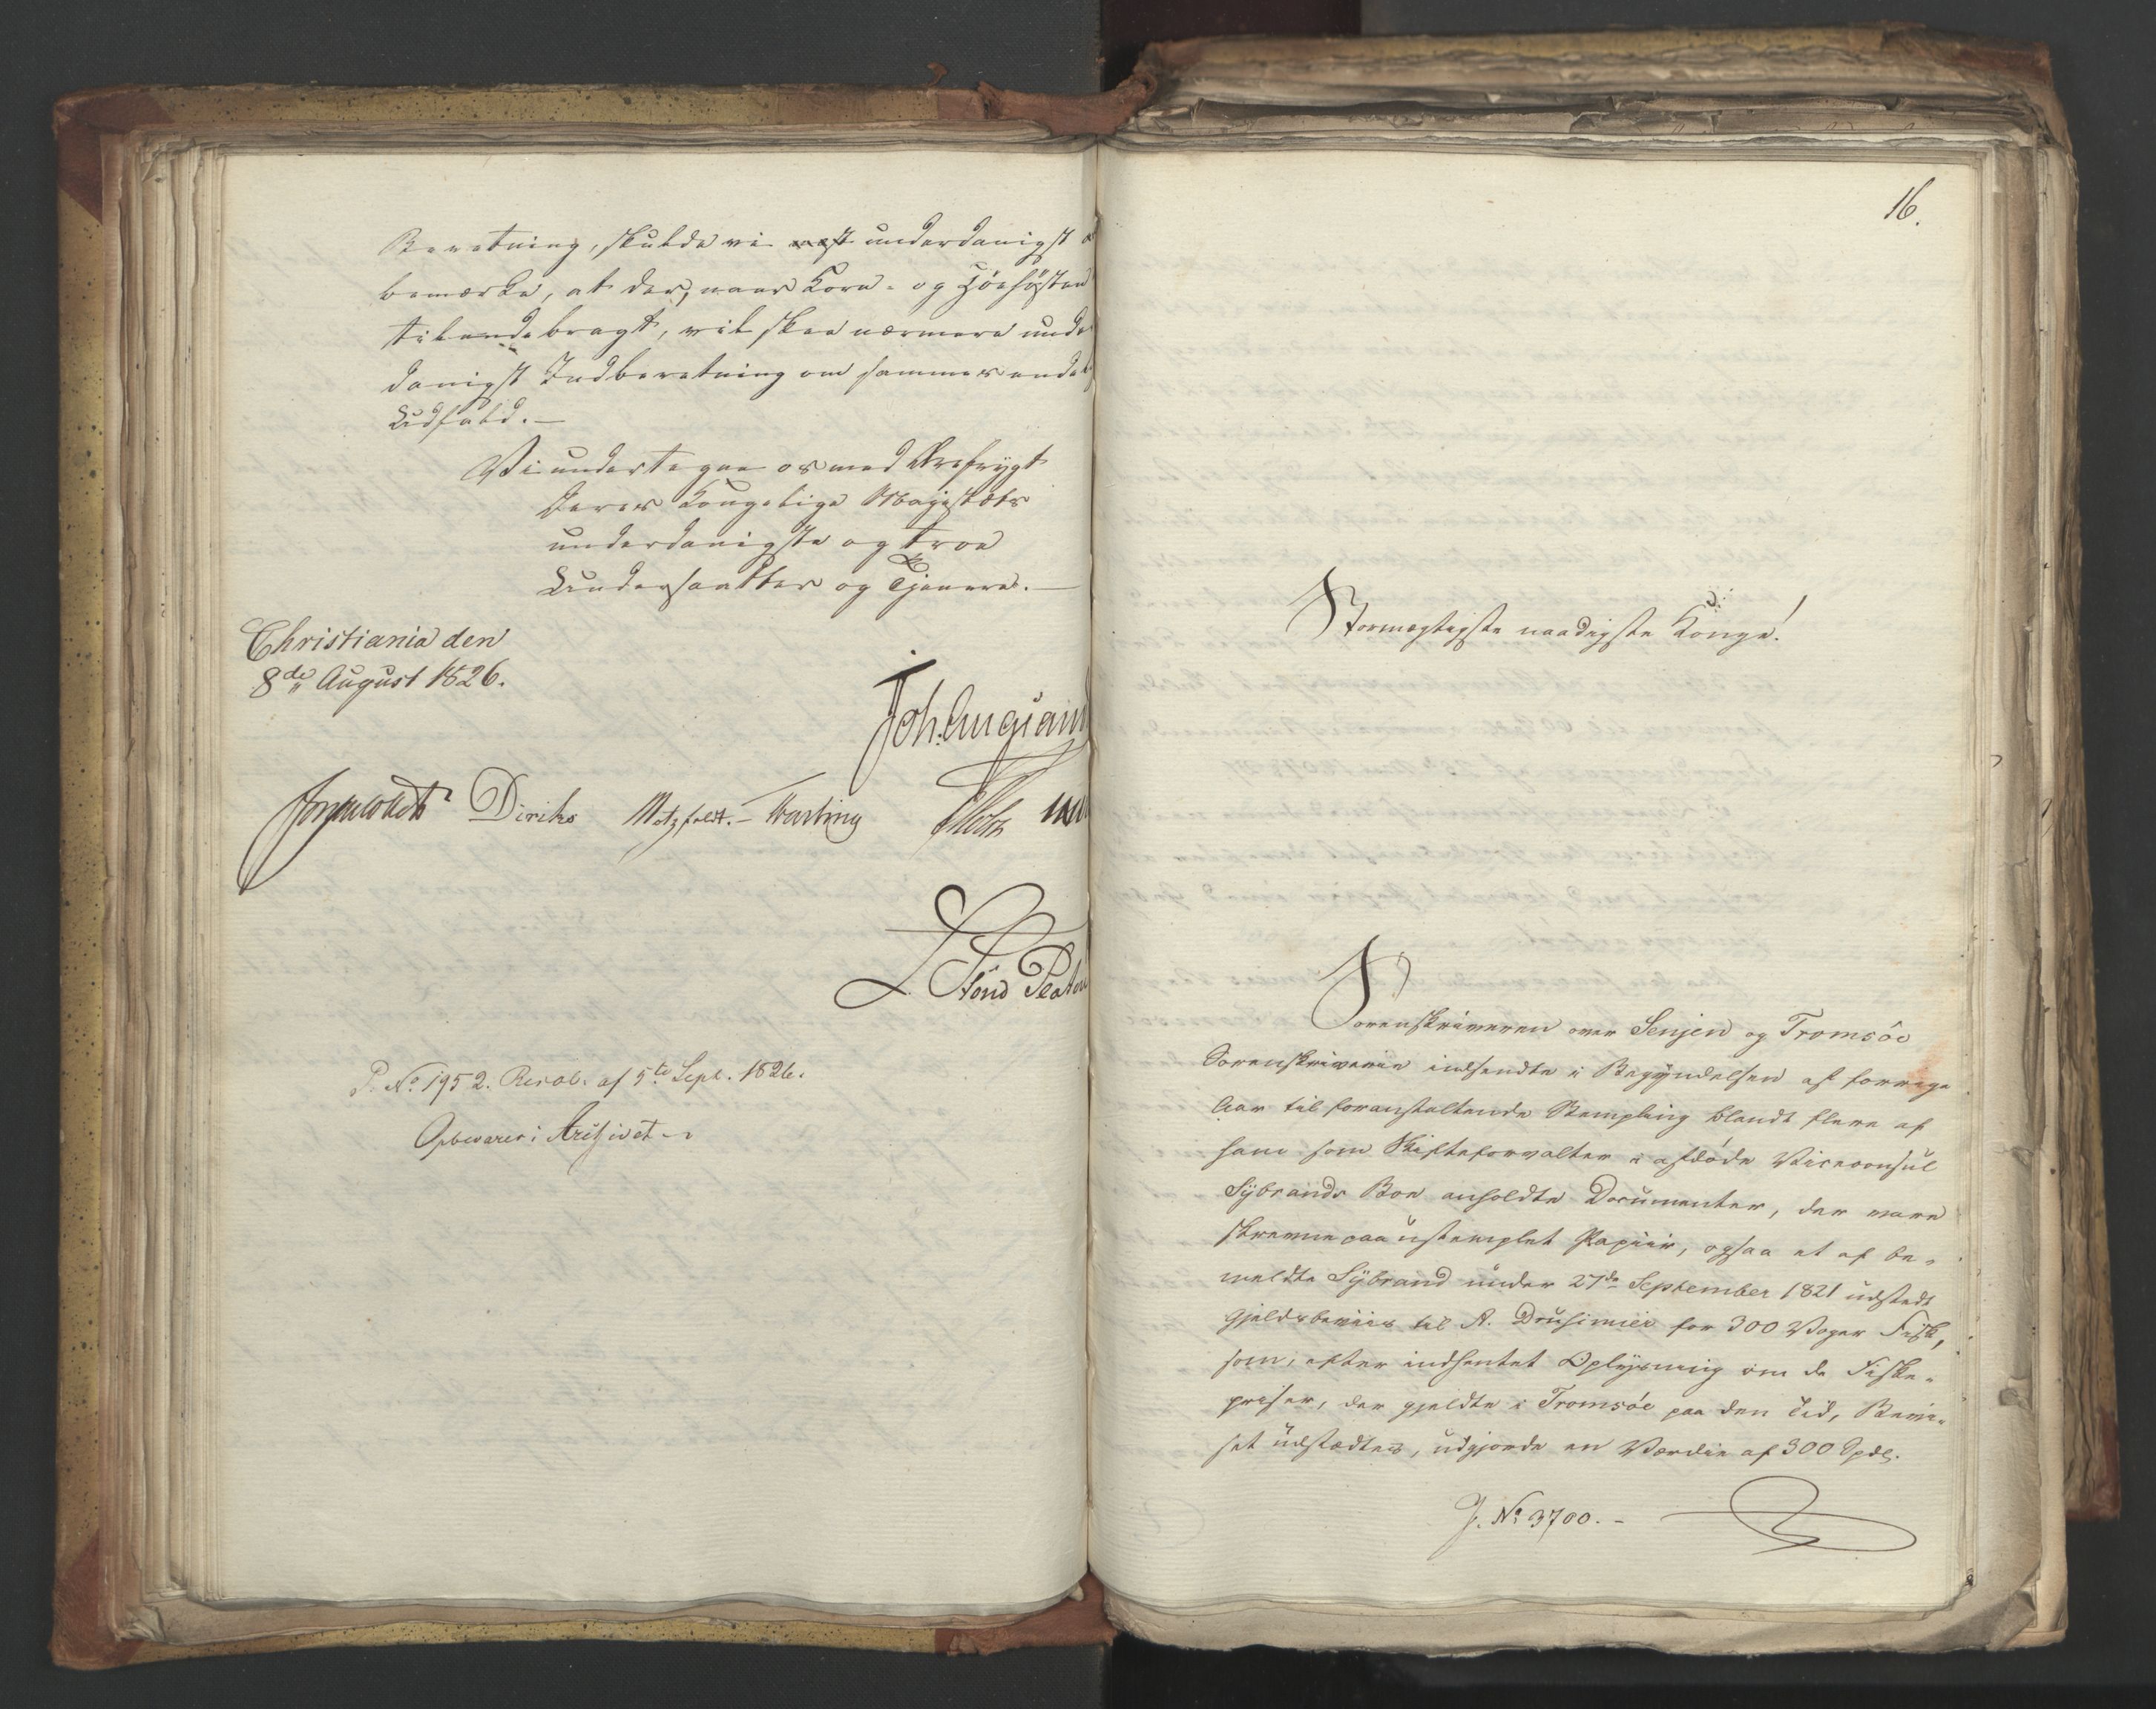 Beretning, skulde vi underdanigst
bemærke, at der, naar Korn- og Höehösten
tilendebragt, vil skee nærmere under
danigst Indberetning om sammes endel
Udfald.—
Vi undertegne os med Ærefrygt
Deres Kongelige Majestæts
underdanigste og troe
Undersaatter og Tjenere.—
Christiania den
8de August 1826.
Joh. Aug. Sand
Diriks Motzfeldt.— Vartung
Töns Peters
P. No 1952. Resol. af 5te Sept. 1826.
Opbevares i Archivet
16.
Stormægtigste naadigste Konge!
Sorenskriveren over Senjen og Tromsöe
Sorenskriverie indsendte i Begyndelsen af forrige
Aar til foranstaltende Stempling blandt flere af
ham som Skifteforvalter i afdöde Viceconsul
Sÿbrands Boe anholdte Documenter, der vare
skrevne paa ustemplet Papiir, ogsaa et af be-
meldte Sÿbrand under 27de September 1821 udstedt
Gjeldsbeviis til A. Drusimier for 300 Voger Fisk,
som, efter indhentet Oplysning om de Fiske-
priser, der gjeldte i Tromsöe paa den Tid, Bevi-
set udstædtes, udgjorde en Værdie af 300 Spdl.
J. No 3700.-